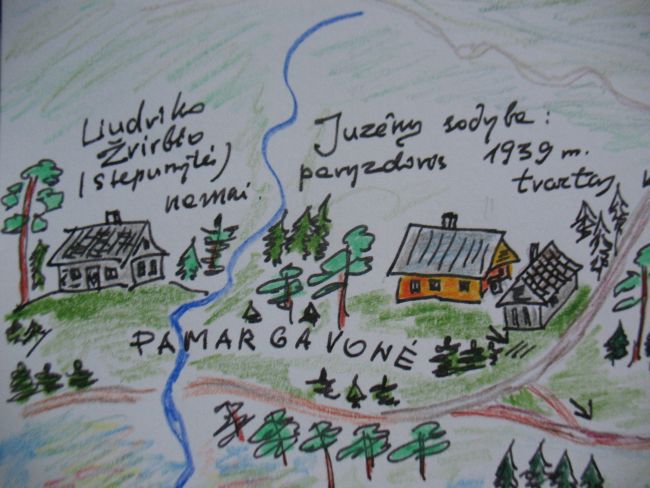 Liudviko
Žvirblio
(stepunytės)
namai
Juzėnų sodyba:
pavyzdovas 1939 m.
tvartas
PAMARGAVONĖ